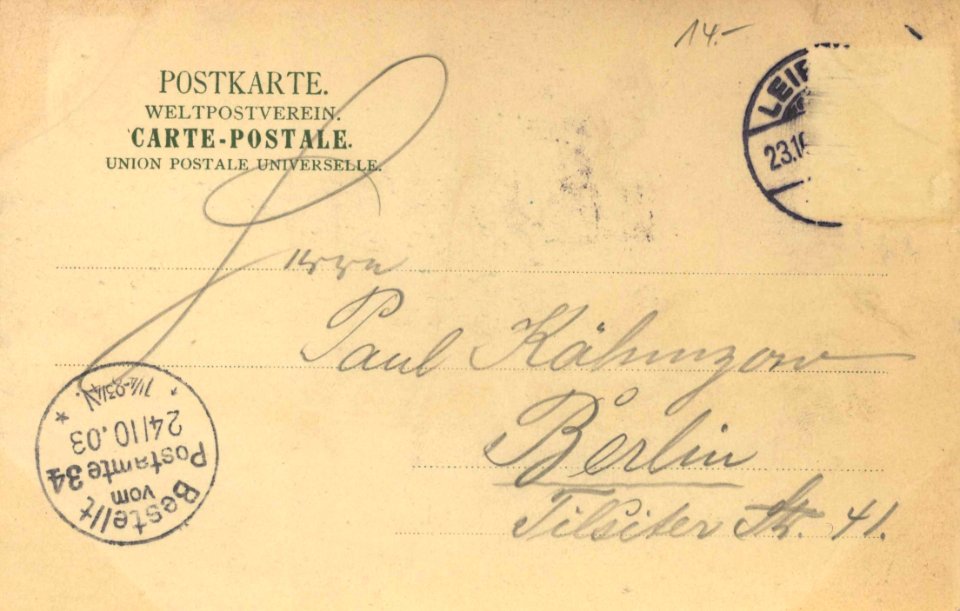 14.-
POSTKARTE.
WELTPOSTVEREIN.
CARTE-POSTALE.
UNION POSTALE UNIVERSELLE.
LEIP
23.10
Herrn
Paul Kähmzow
Berlin
Tilsiter Str. 41.
Bestellt
vom
Postamte 34
24/10.03